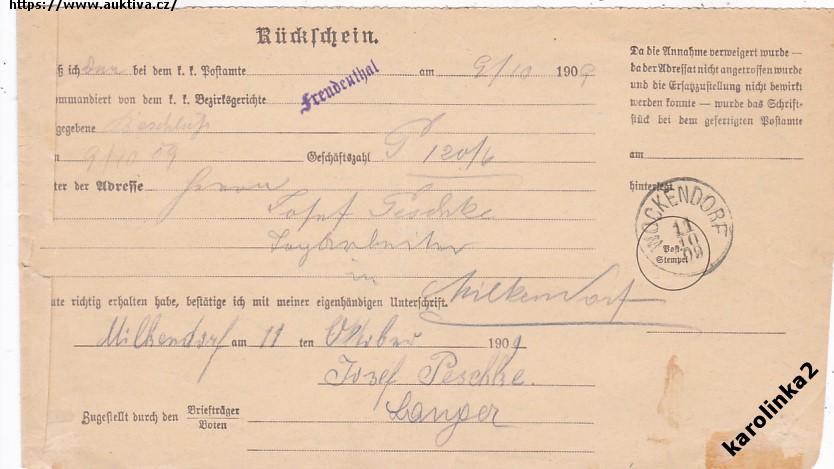 https://www.auktiva.cz/
Rückschein.
ß ich der bei dem k. k. Postamte Freudenthal am 9/10 1909
ommandiert von dem k. k. Bezirksgerichte
gegebene Beschluß
n 9/10 09 Geschäftszahl P 120/6
ter der Adresse Herrn
Josef Peschke
Tagarbeiter
in
Milkendorf
ute richtig erhalten habe, bestätige ich mit meiner eigenhändigen Unterschrift.
Milkendorf am 11 ten Oktober 1909
Josef Peschke.
Langer
Zugestellt durch den Briefträger
Boten
Da die Annahme verweigert wurde —
da der Adressat nicht angetroffen wurde
und die Ersatzzustellung nicht bewirkt
werden konnte — wurde das Schrift-
stück bei dem gefertigten Postamte
am
hinterlegt
MOCKENDORF
11
10
09
Post-
Stempel
karolinka2